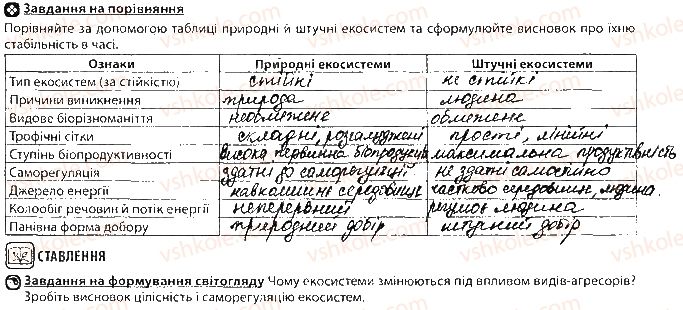 Завдання на порівняння
Порівняйте за допомогою таблиці природні й штучні екосистем та сформулюйте висновок про їхню
стабільність в часі.
Ознаки Природні екосистеми Штучні екосистеми
Тип екосистем (за стійкістю) стійкі не стійкі
Причини виникнення природа людина
Видове біорізноманіття необмежене обмежене
Трофічні сітки складні, розгалуджені прості, лінійні
Ступінь біопродуктивності висока первинна біопродукція максимальна продуктивність
Саморегуляція здатні до саморегуляції не здатні самостійно
Джерело енергії навколишнє середовище частково середовище, людина.
Колообіг речовин й потік енергії неперервний регулює людина
Панівна форма добору природний добір штучний добір
СТАВЛЕННЯ
Завдання на формування світогляду Чому екосистеми змінюються під впливом видів-агресорів?
Зробіть висновок цілісність і саморегуляцію екосистем.
vshkole.com